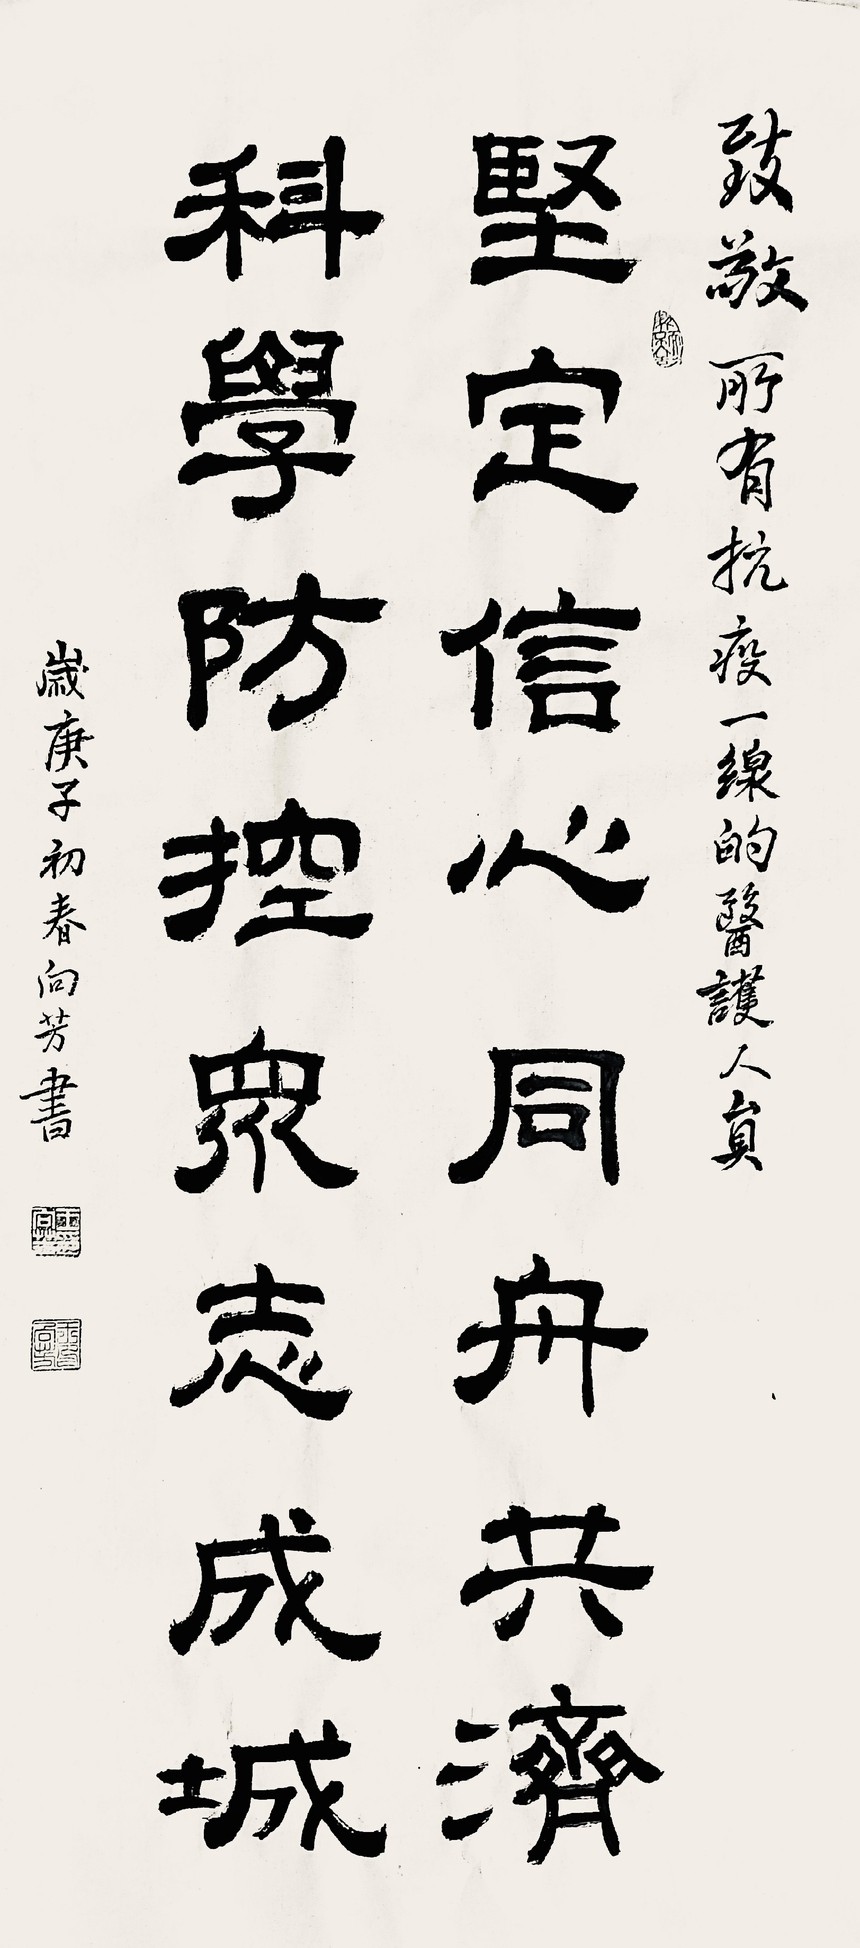 致敬所有抗疫一線的醫護人員
堅定信心同舟共濟
科學防控眾志成城
歲庚子初春向芳書